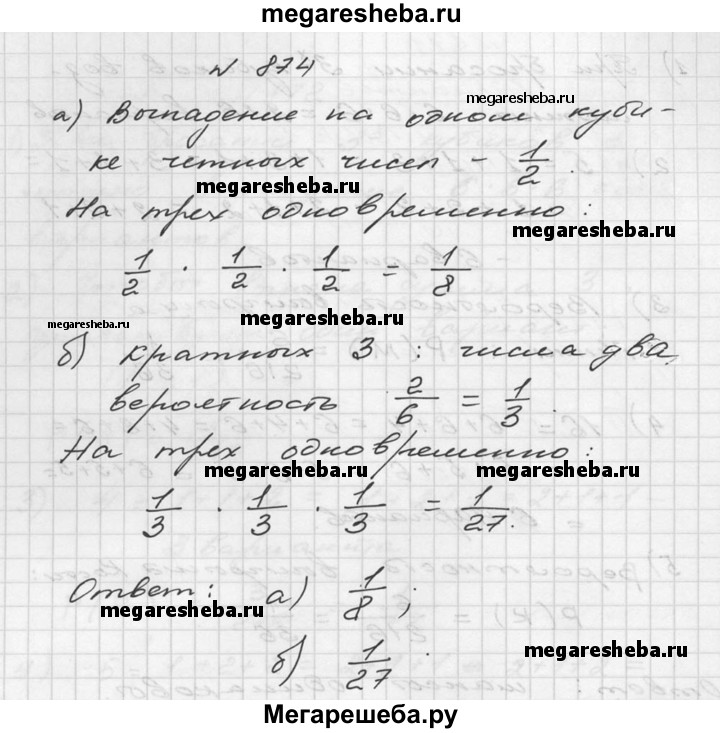 megaresheba.ru
№ 874
megaresheba.ru
а) Выпадение на одном куби-
ке четных чисел - 1/2.
megaresheba.ru
На трех одновременно:
megaresheba.ru
1/2 · 1/2 · 1/2 = 1/8
megaresheba.ru
megaresheba.ru
б) кратных 3 : числа два,
вероятность 2/6 = 1/3.
На трех одновременно:
megaresheba.ru
megaresheba.ru
1/3 · 1/3 · 1/3 = 1/27.
Ответ: а) 1/8;
megaresheba.ru
б) 1/27.
Мегарешеба.ру